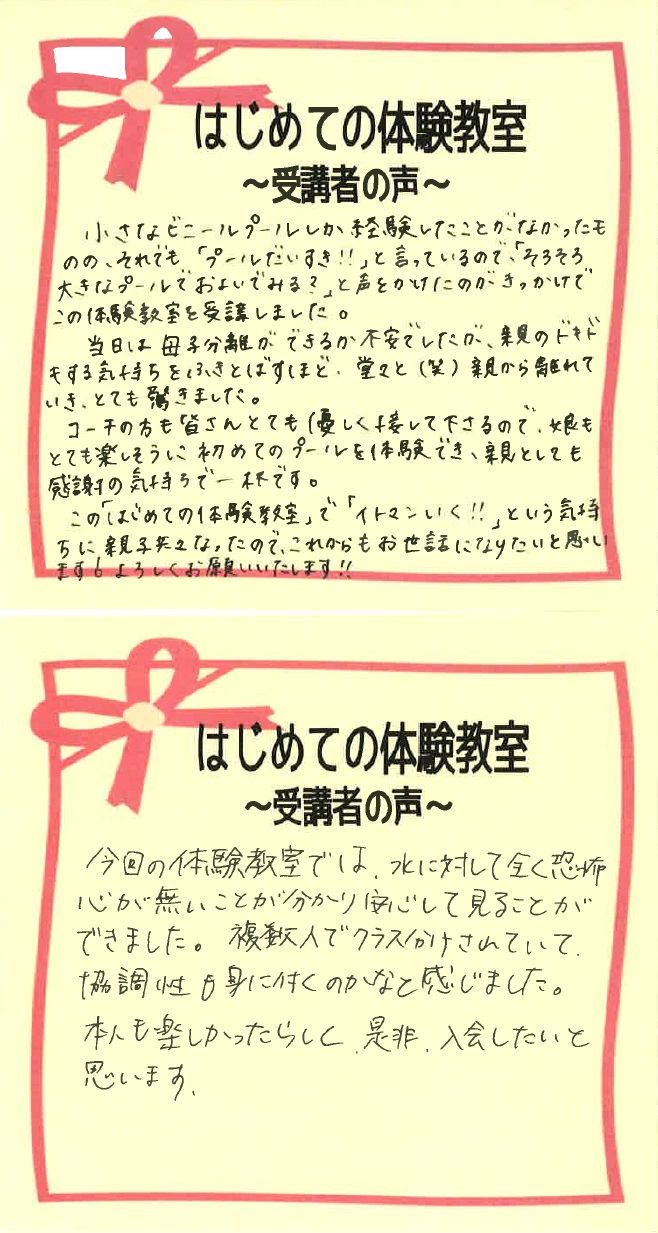 はじめての体験教室
～受講者の声～
小さなビニールプールしか経験したことがなかったも
のの、それでも、「プールだいすき!!」と言っているので、「そろそろ
大きなプールでおよいでみる?」と声をかけたのがきっかけで
この体験教室を受講しました。
当日は母子分離ができるか不安でしたが、親のドキド
キする気持ちをふきとばすほど、堂々と(笑)親から離れて
いき、とても驚きました。
コーチの方も皆さんとても優しく接して下さるので、娘も
とても楽しそうに初めてのプールを体験でき、親としても
感謝の気持ちで一杯です。
この「はじめての体験教室」で「イトマンいく!!」という気持
ちに親子共々なったので、これからもお世話になりたいと思い
ます。よろしくお願いいたします!!
はじめての体験教室
～受講者の声～
今回の体験教室では、水に対して全く恐怖
心が無いことが分かり安心して見ることが
できました。複数人でクラス分けされていて、
協調性も身に付くのかなと感じました。
本人も楽しかったらしく、是非、入会したいと
思います。